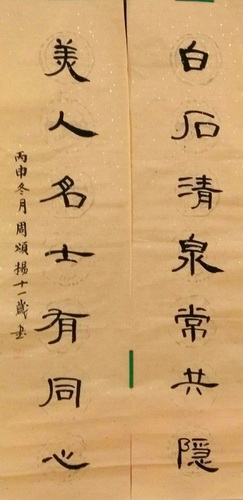 白石清泉常共隐
美人名士有同心
丙申冬月周頌揚十一歲書